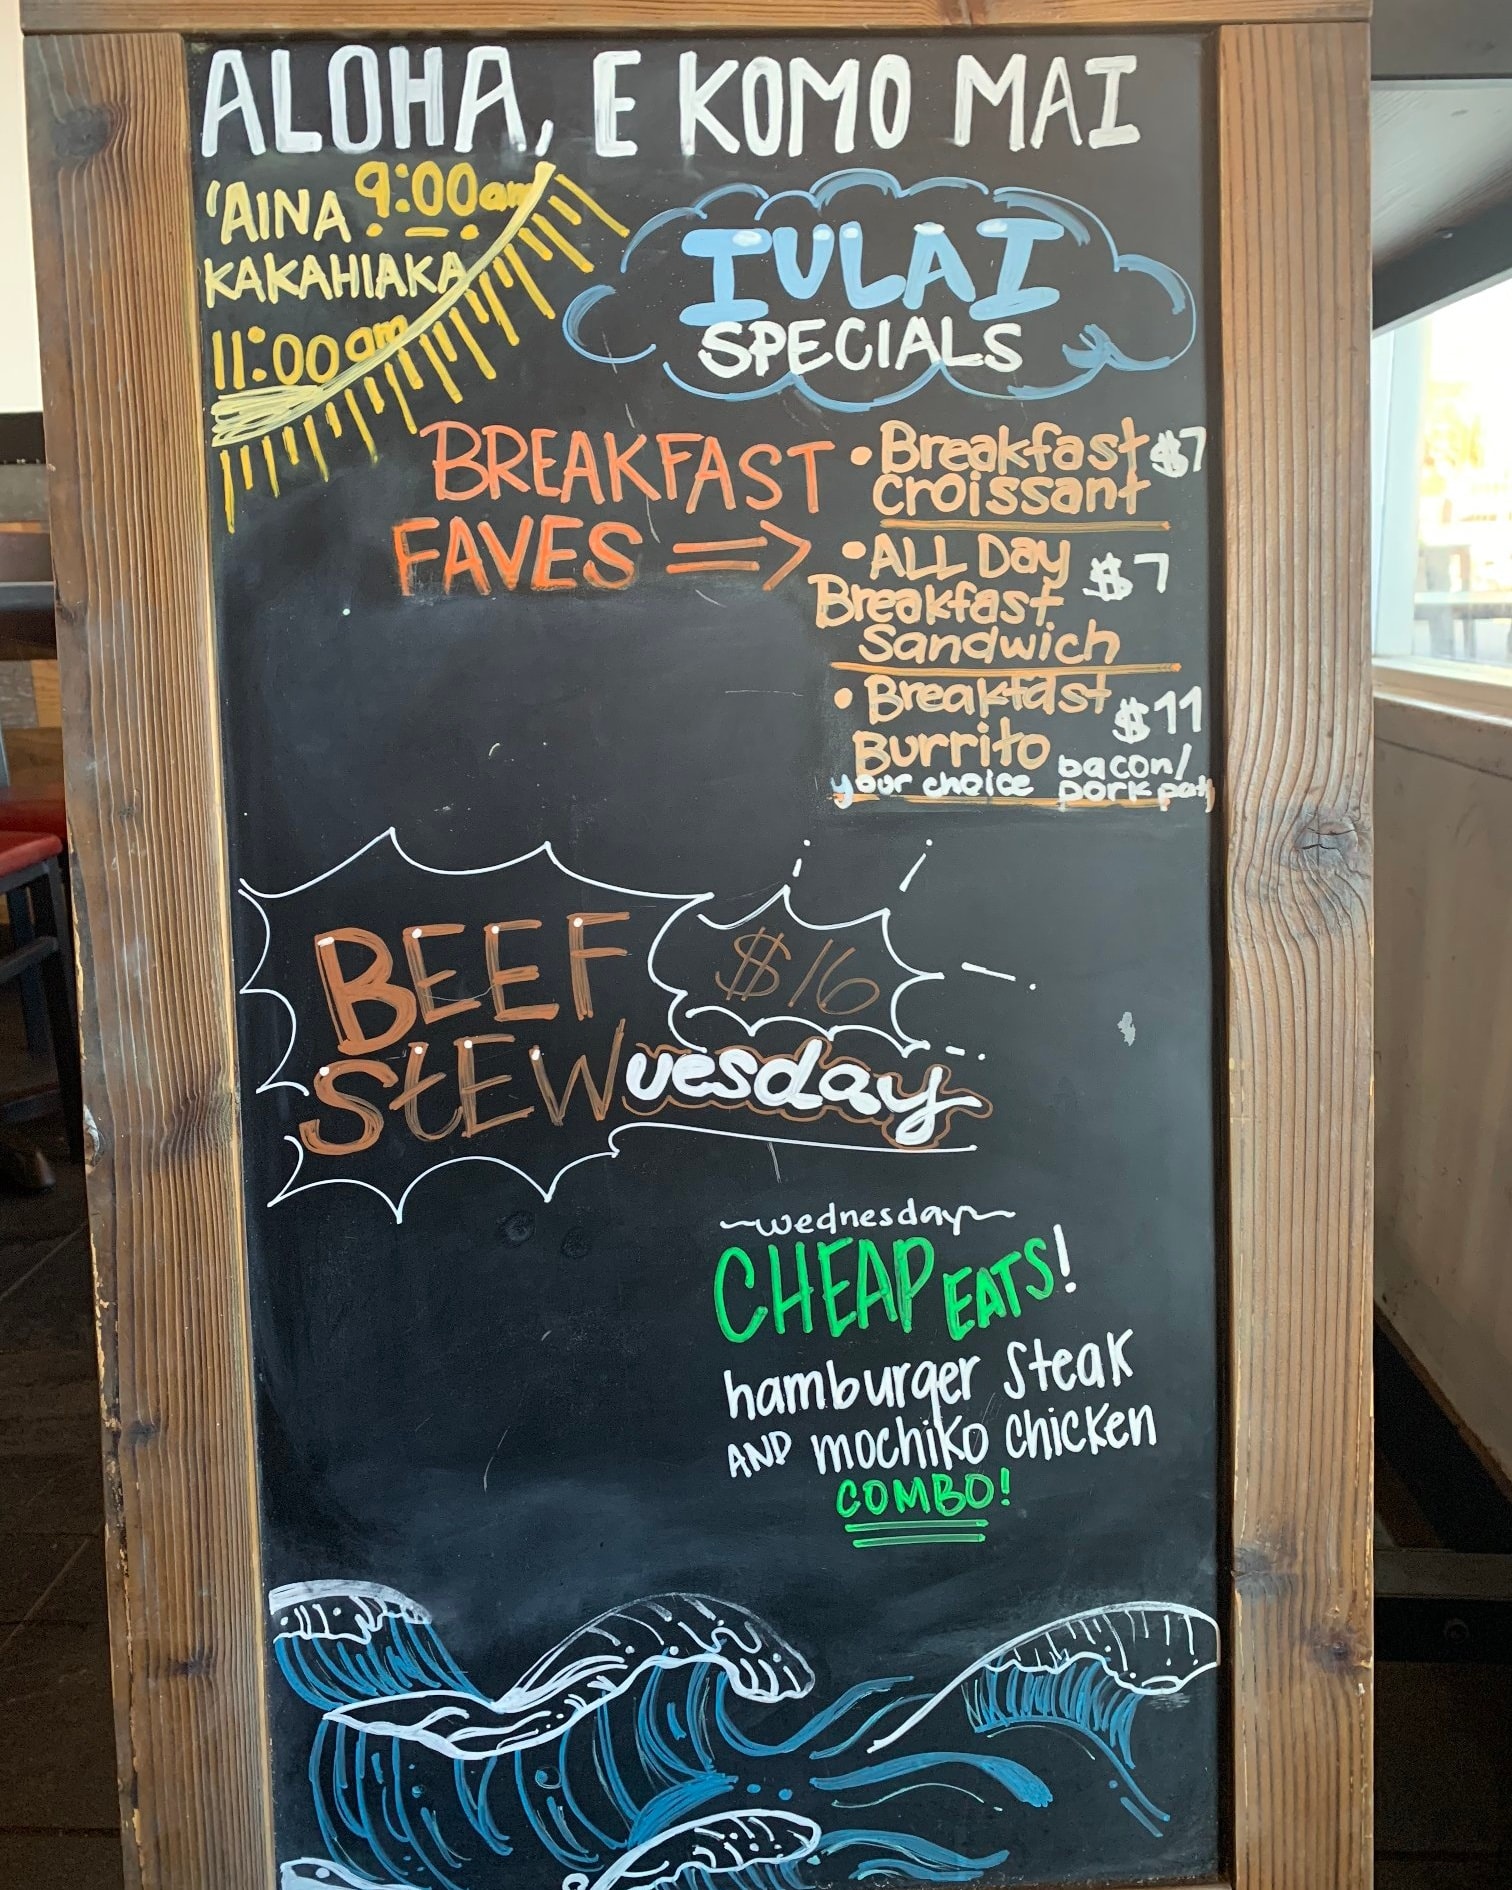 ALOHA, E KOMO MAI
'AINA 9:00am
KAKAHIAKA
11:00am
IULAI
SPECIALS
BREAKFAST
FAVES =>
• Breakfast $7
croissant
• ALL Day $7
Breakfast
Sandwich
• Breakfast $11
Burrito
your choice bacon/
pork
BEEF $16
StEWuesday
~wednesday~
CHEAP EATS!
hamburger steak
AND mochiko chicken
COMBO!